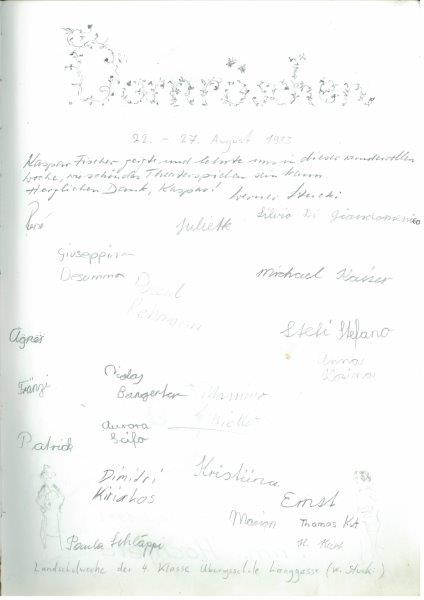 Dornröschen
22. - 27. August 1983
Kaspar Fischer zeigte und lehrte uns in dieser wundervollen
Woche, wie schön das Theaterspielen sein kann.
Herzlichen Dank, Kaspar! Werner Stucki
René
Juliette
Silvio Di Giandomenico
Giuseppina
Desumma
Michael Kaiser
Rehmann
Stefi Stefano
Agnes
Anna
Fränzi
Nicolas
Bangerter
Massimo
Aurora
Scifo
Patrick
Kristiina
Dimitri
Kiriakos
Ernst
Marion
Thomas Kut
H. Kurt
Paula Schläppi
Landschulwoche der 4. Klasse Übungsschule Länggasse (W. Stucki)